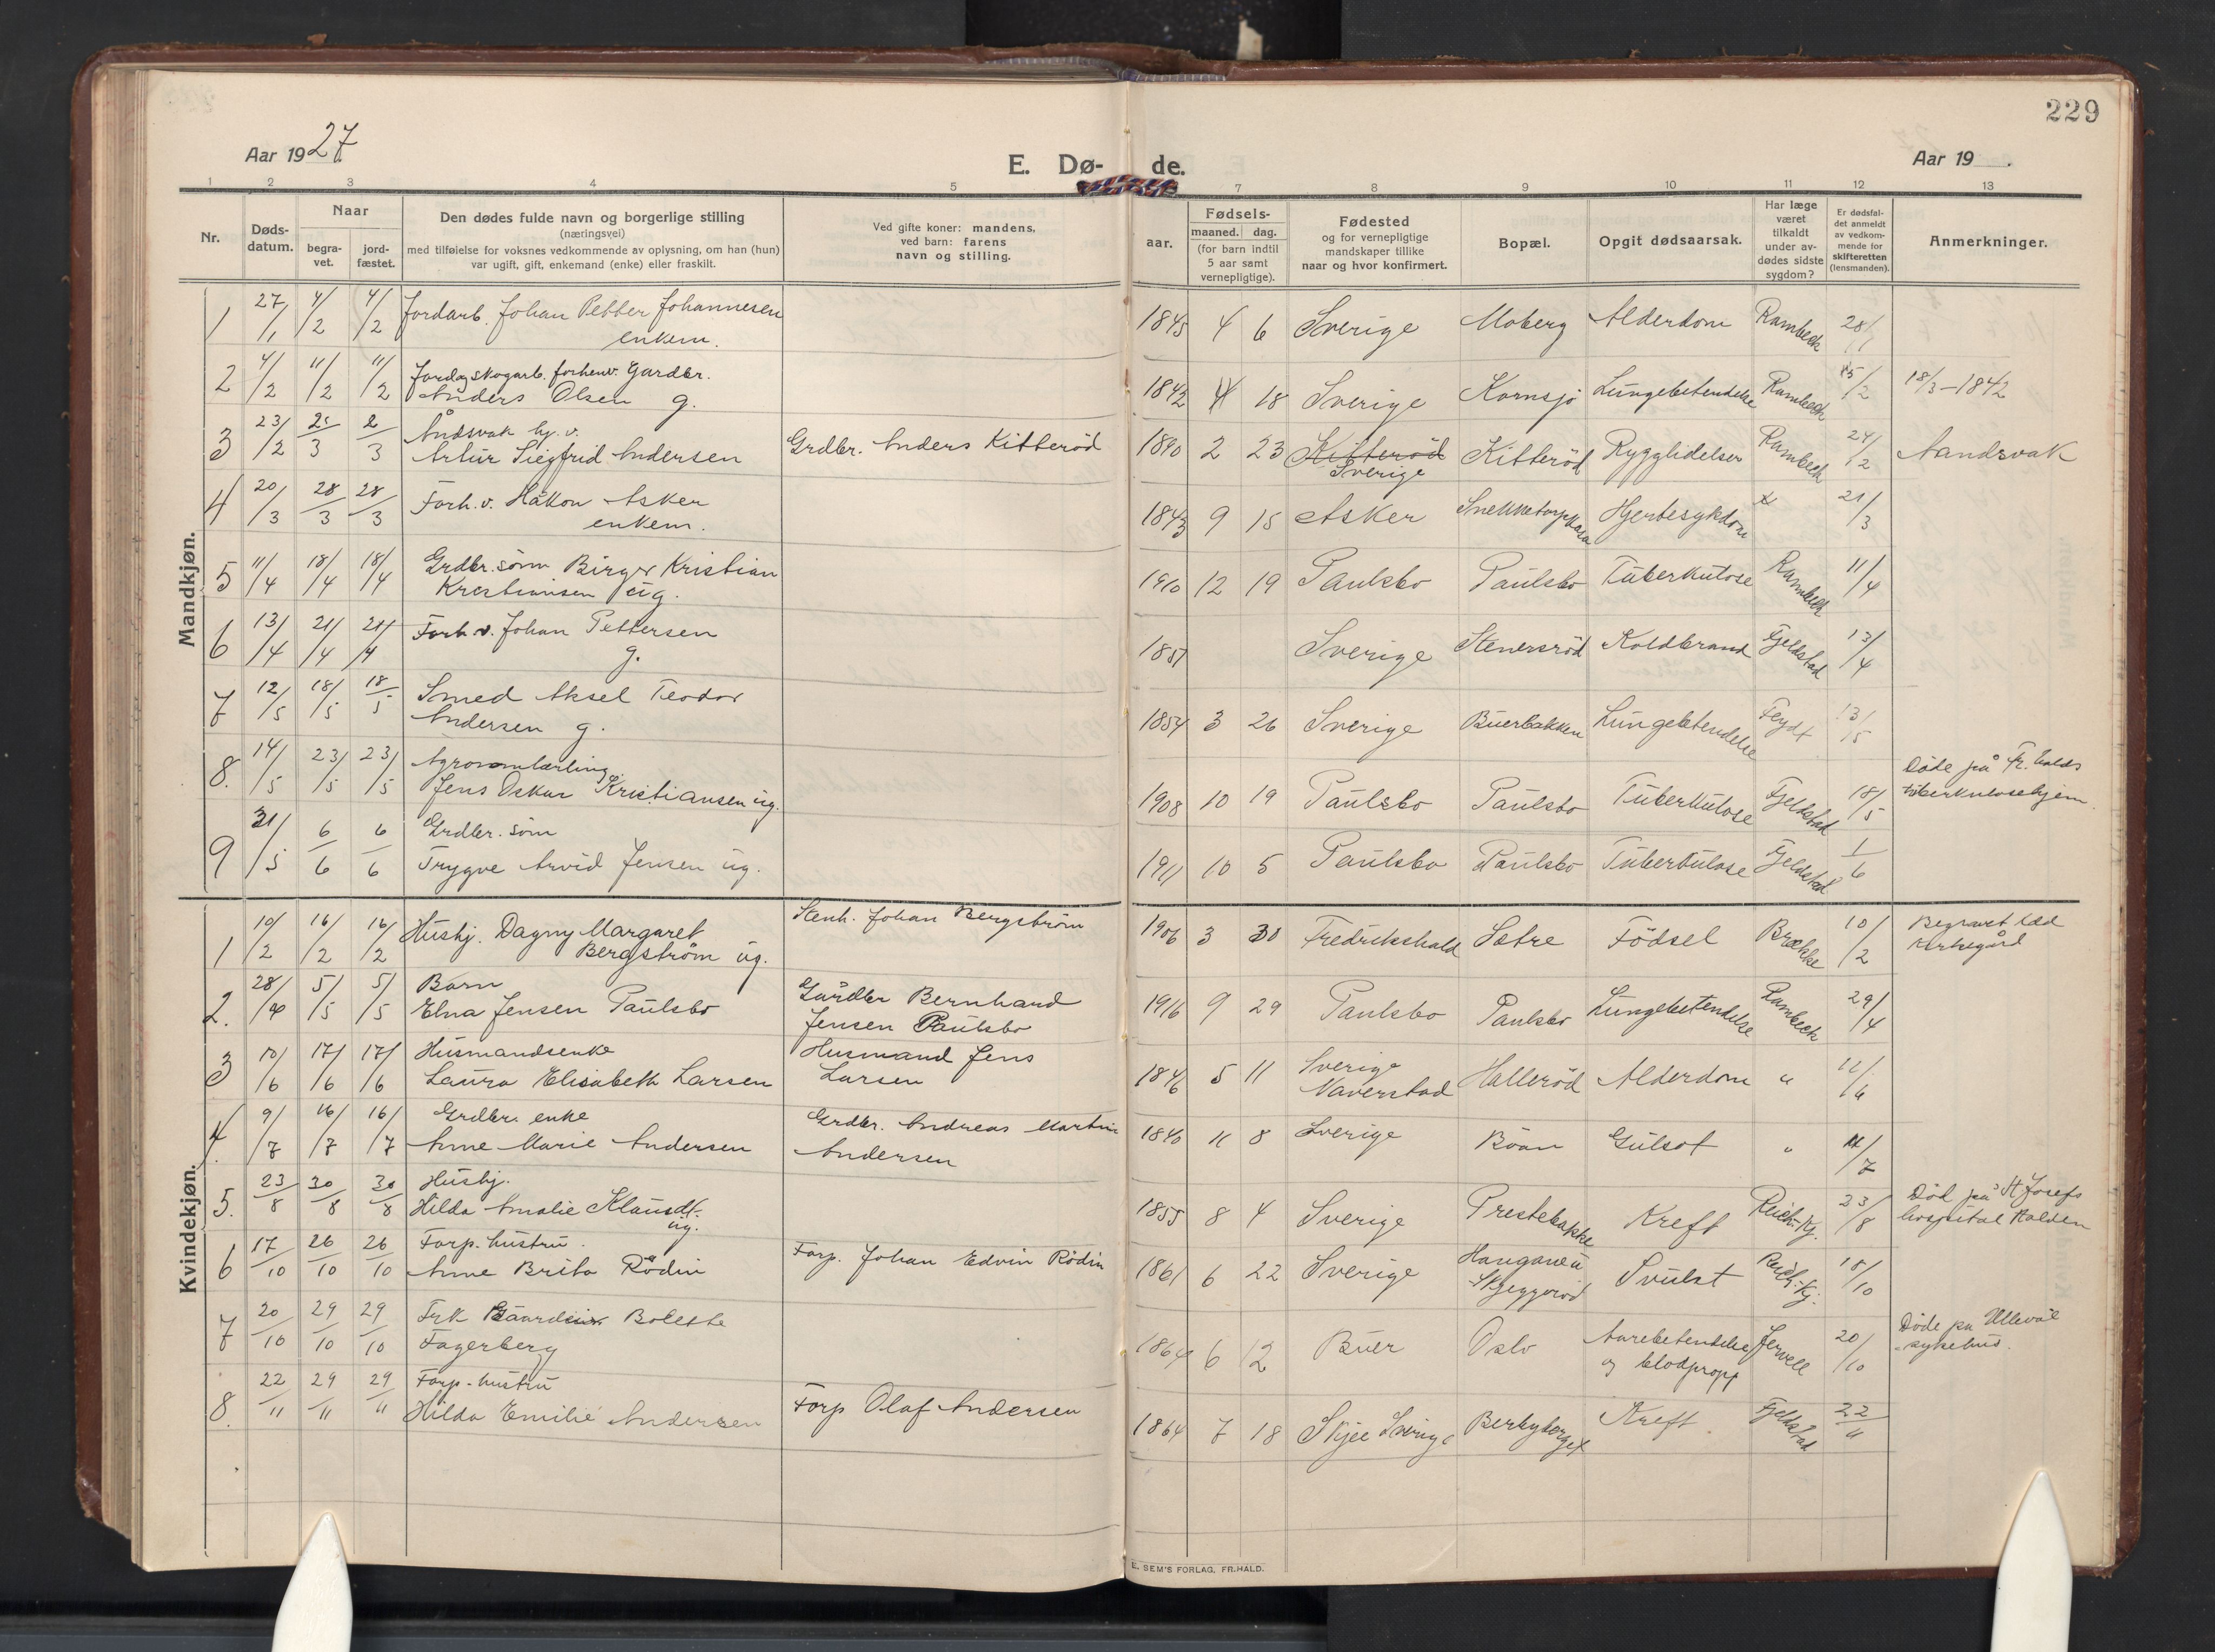 229
Aar 1927.
E. Dø-de.
Aar 19 .
1 2 3 4 5 7 8 9 10 11 12 13
Nr.
Døds-
datum.
Naar
begra-
vet.
jord-
fæstet.
Den dødes fulde navn og borgerlige stilling
(næringsvei)
med tilføielse for voksnes vedkommende av oplysning, om han (hun)
var ugift, gift, enkemand (enke) eller fraskilt.
Ved gifte koner: mandens,
ved barn: farens
navn og stilling.
Fødsels-
aar.
maaned. dag.
(for barn indtil
5 aar samt
vernepligtige).
Fødested
og for vernepligtige
mandskaper tillike
naar og hvor konfirmert.
Bopæl.
Opgit dødsaarsak.
Har læge
været
tilkaldt
under av-
dødes sidste
sygdom?
Er dødsfal-
det anmeldt
av vedkom-
mende for
skifteretten
(lensmanden).
Anmerkninger.
Mandkjøn.
1 27/1 4/2 4/2 Jordarb. Johan Petter Johannesen
enkem.
1845 4 6 Sverige Moberg Alderdom Rambeck 28/1
2 4/2 11/2 11/2 Jord og skogarb. forhenv. Gardbr.
Anders Olsen g.
1842 18 Sverige Kornsjø Lungebetendelse Rambeck 5/2 18/3-1842
3 23/2 2/3 2/3 Åndsvak
Artur Siegfrid Andersen
Grdbr. Anders Kitteröd
2 23 Kitteröd
Sverige
Kitteröd Rygglidelser Rambeck 24/2 Aandsvak
4 20/3 28/3 28/3 Forh. v. Håkon Asker
enkem.
1843 9 15 Asker Hjertesykdom x 21/3
5 11/4 18/4 18/4 Grdbr. sönn Birger Kristian
Kristiansen ug.
1910 12 19 Paulsbo Paulsbo Tuberkulose Rambeck 11/4
6 13/4 21/4 21/4 Forh. v. Johan Pettersen
g.
1857 Sverige Stenersröd Koldbrand Fjeldstad 13/4
7 12/5 18/5 18/5 Smed Aksel Teodor
Andersen g.
1854 3 26 Sverige Buerbakken Lungebetendelse Feydt 13/5
8. 14/5 23/5 23/5 Agronomlærling
Jens Oskar Kristiansen ug.
1908 10 19 Paulsbo Paulsbo Tuberkulose Fjeldstad 18/5
Döde på Fr.halds
tuberkulosehjem.
9 31/5 6/6 6/6 Grdbr. sönn
Trygve Arvid Jensen ug.
1911 10 5 Paulsbo Paulsbo Tuberkulose Fjeldstad 1/6
Kvindekjøn.
1 10/2 16/2 16/2 Hushj. Dagny Margaret
Bergström ug.
Stenh. Johan Bergström
1906 3 30 Fredrikshald Setre Födsel Brække 10/2
Begravet Idd
kirkegård
2. 28/4 5/5 5/5 Barn
Elna Jensen Paulsbo
Gårdbr Bernhard
Jensen Paulsbo
1916 9 29 Paulsbo Paulsbo Lungebetendelse Rambeck 29/4
3 10/6 17/6 17/6 Husmandsenke
Laura Elisabeth Larsen
Husmand Jens
Larsen
1846 5 11 Sverige
Naverstad
Halleröd Alderdom " 11/6
4. 9/7 16/7 16/7 Grdbr. enke
Anne Marie Andersen
Grdbr. Andreas Martin
Andersen
1840 11 8 Sverige Böan Gulsot " 11/7
5. 23/8 30/8 30/8 Hushj.
Hilda Amalie Klaundt.
ug.
1855 8 4 Sverige Prestebakke Kreft 23/8
Död på St Josefs
hospital Halden
6 17/10 26/10 26/10 Forp. hustru.
Anne Brita Rödin
Forp. Johan Edvin Rödin
1861 6 22 Sverige
Skjeggeröd
Svulst 18/10
7 20/10 29/10 29/10 Frk Bolette
Fagerberg
1864 6 12 Buer Oslo Aarebetendelse
og blodpropp
Jervell 20/10
Döde på Ullevål
sykehus.
8. 22/11 29/11 29/11 Forp. hustru
Hilda Emilie Andersen
Forp Olaf Andersen
1864 7 18 Skjee Sverige Berbyberget Kreft. Fjeldstad 22/11
E. SEM'S FORLAG, FR.HALD.